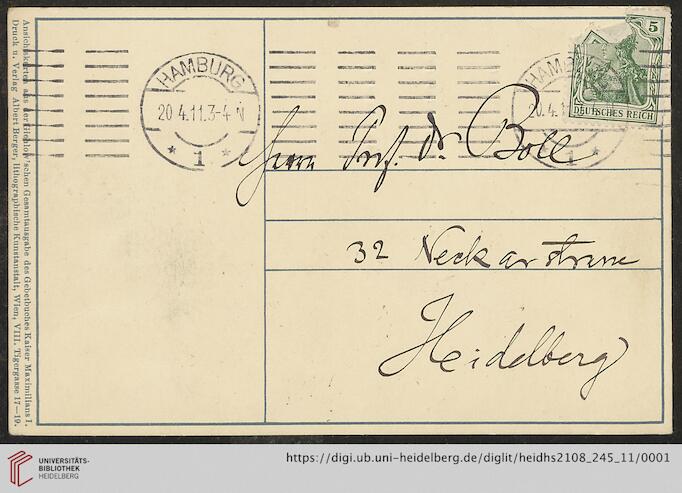 Ansichtskarten aus der Ziehbaren'schen Gesamtausgabe des Gebetbuches Kaiser Maximilians I.
Druck u. Verlag Albert Berger, lithographische Kunstanstalt, Wien, VIII. Tigergasse 17—19.
HAMBURG
20 4.11.3-4 N
* 1 *
HAMBURG
20.4.1
1 *
5
DEUTSCHES REICH
Herrn Prof. Dr Boll
32 Neckarstrasse
Heidelberg
UNIVERSITÄTS-
BIBLIOTHEK
HEIDELBERG
https://digi.ub.uni-heidelberg.de/diglit/heidhs2108_245_11/0001